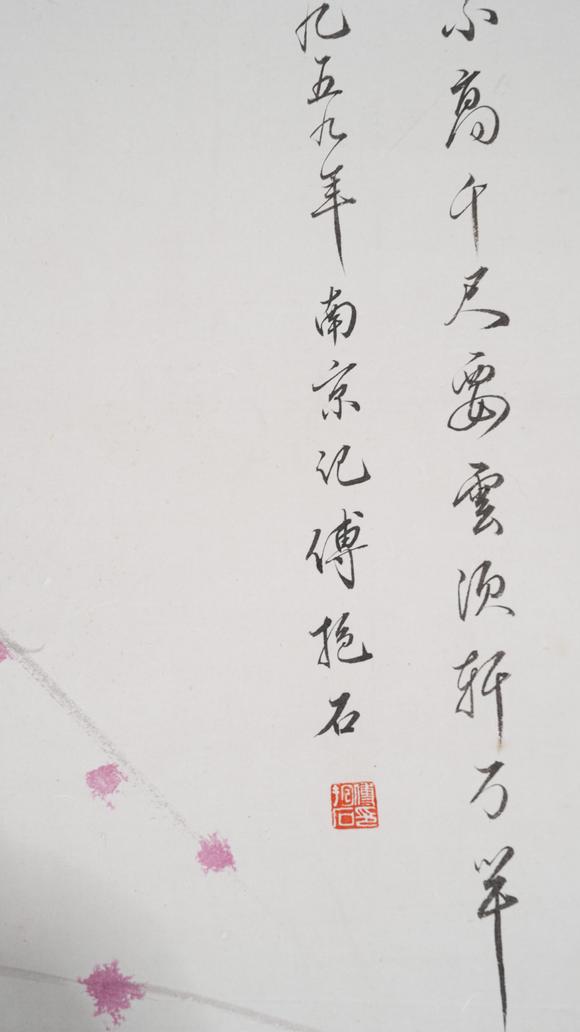 不高千尺要雲须斬万竿
九五九年南京记傅抱石
傅印
抱石